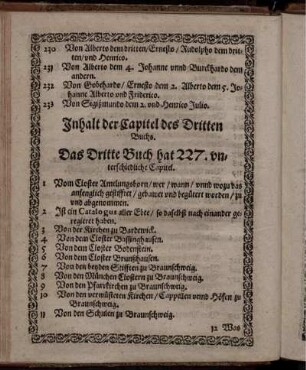 230 Von Alberto dem dritten/Ernesto/ Rudolpho dem drit-
ten/vnd Henrico.
231 Von Alberto dem 4. Johanne vnnd Burckhardo dem
andern.
232 Von Gobehardo/ Ernesto dem 2. Alberto dem 5. Jo-
hanne Alberto vnd Friderico.
233 Von Sigißmundo dem 2. vnd Henrico Julio.
Inhalt der Capitel des Dritten
Buchs.
Das Dritte Buch hat 227. vn-
terschiedliche Capitel.
1 Vom Closter Amelungsborn/ wer/ wann/ vnnd wozu das
anfenglich gestifftet/ gebawet vnd begütert worden/ zu
vnd abgenommen.
2 Ist ein Catalogus aller Ebte/ so daselbst nach einander ge-
regieret haben.
3 Von der Kirchen zu Bardewick.
4 Von dem Closter Bassinghausen.
5 Von dem Closter Bodenstein.
6 Von dem Closter Brunshausen.
7 Von den beyden Stifften zu Braunschweig.
8 Von den München Clöstern zu Braunschweig.
9 Von den Pfarrkirchen zu Braunschweig.
10 Von den verwüsteten Kirchen/ Cappellen vnnd Höfen zu
Braunschweig.
11 Von den Schulen zu Braunschweig.
12 Von